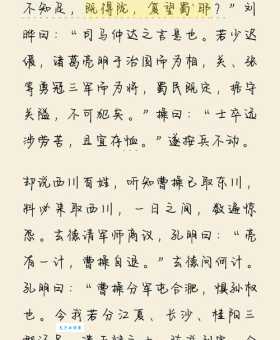 不知足，既得陇，复望蜀耶？”刘
晔曰：“司马仲达之言是也。若少迟
缓，诸葛亮明于治国而为相，关、张
等勇冠三军而为将，蜀民既定，据守
关隘，不可犯矣。”操曰：“士卒远
涉劳苦，且宜存恤。”遂按兵不动。
却说西川百姓，听知曹操已取东川，
料必来取西川，一日之间，数遍惊
恐。玄德请军师商议，孔明曰：“亮
有一计，曹操自退。”玄德问何计。
孔明曰：“曹操分军屯合肥，惧孙权
也。今我若分江夏、长沙、桂阳三